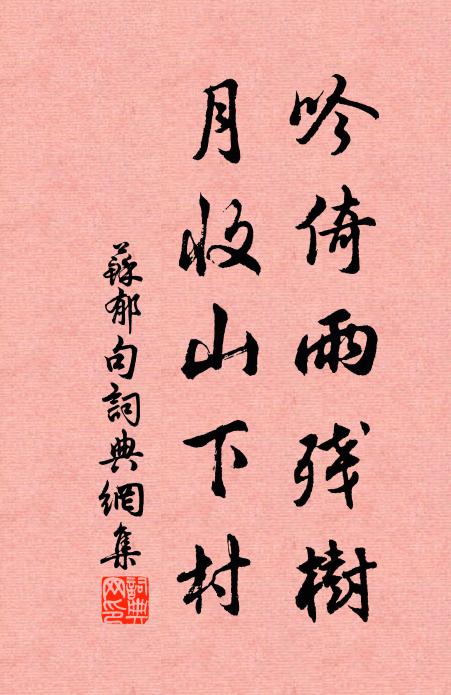 吟倚雨残樹
月收山下村
蘇郁句詞典網集
詞典网印